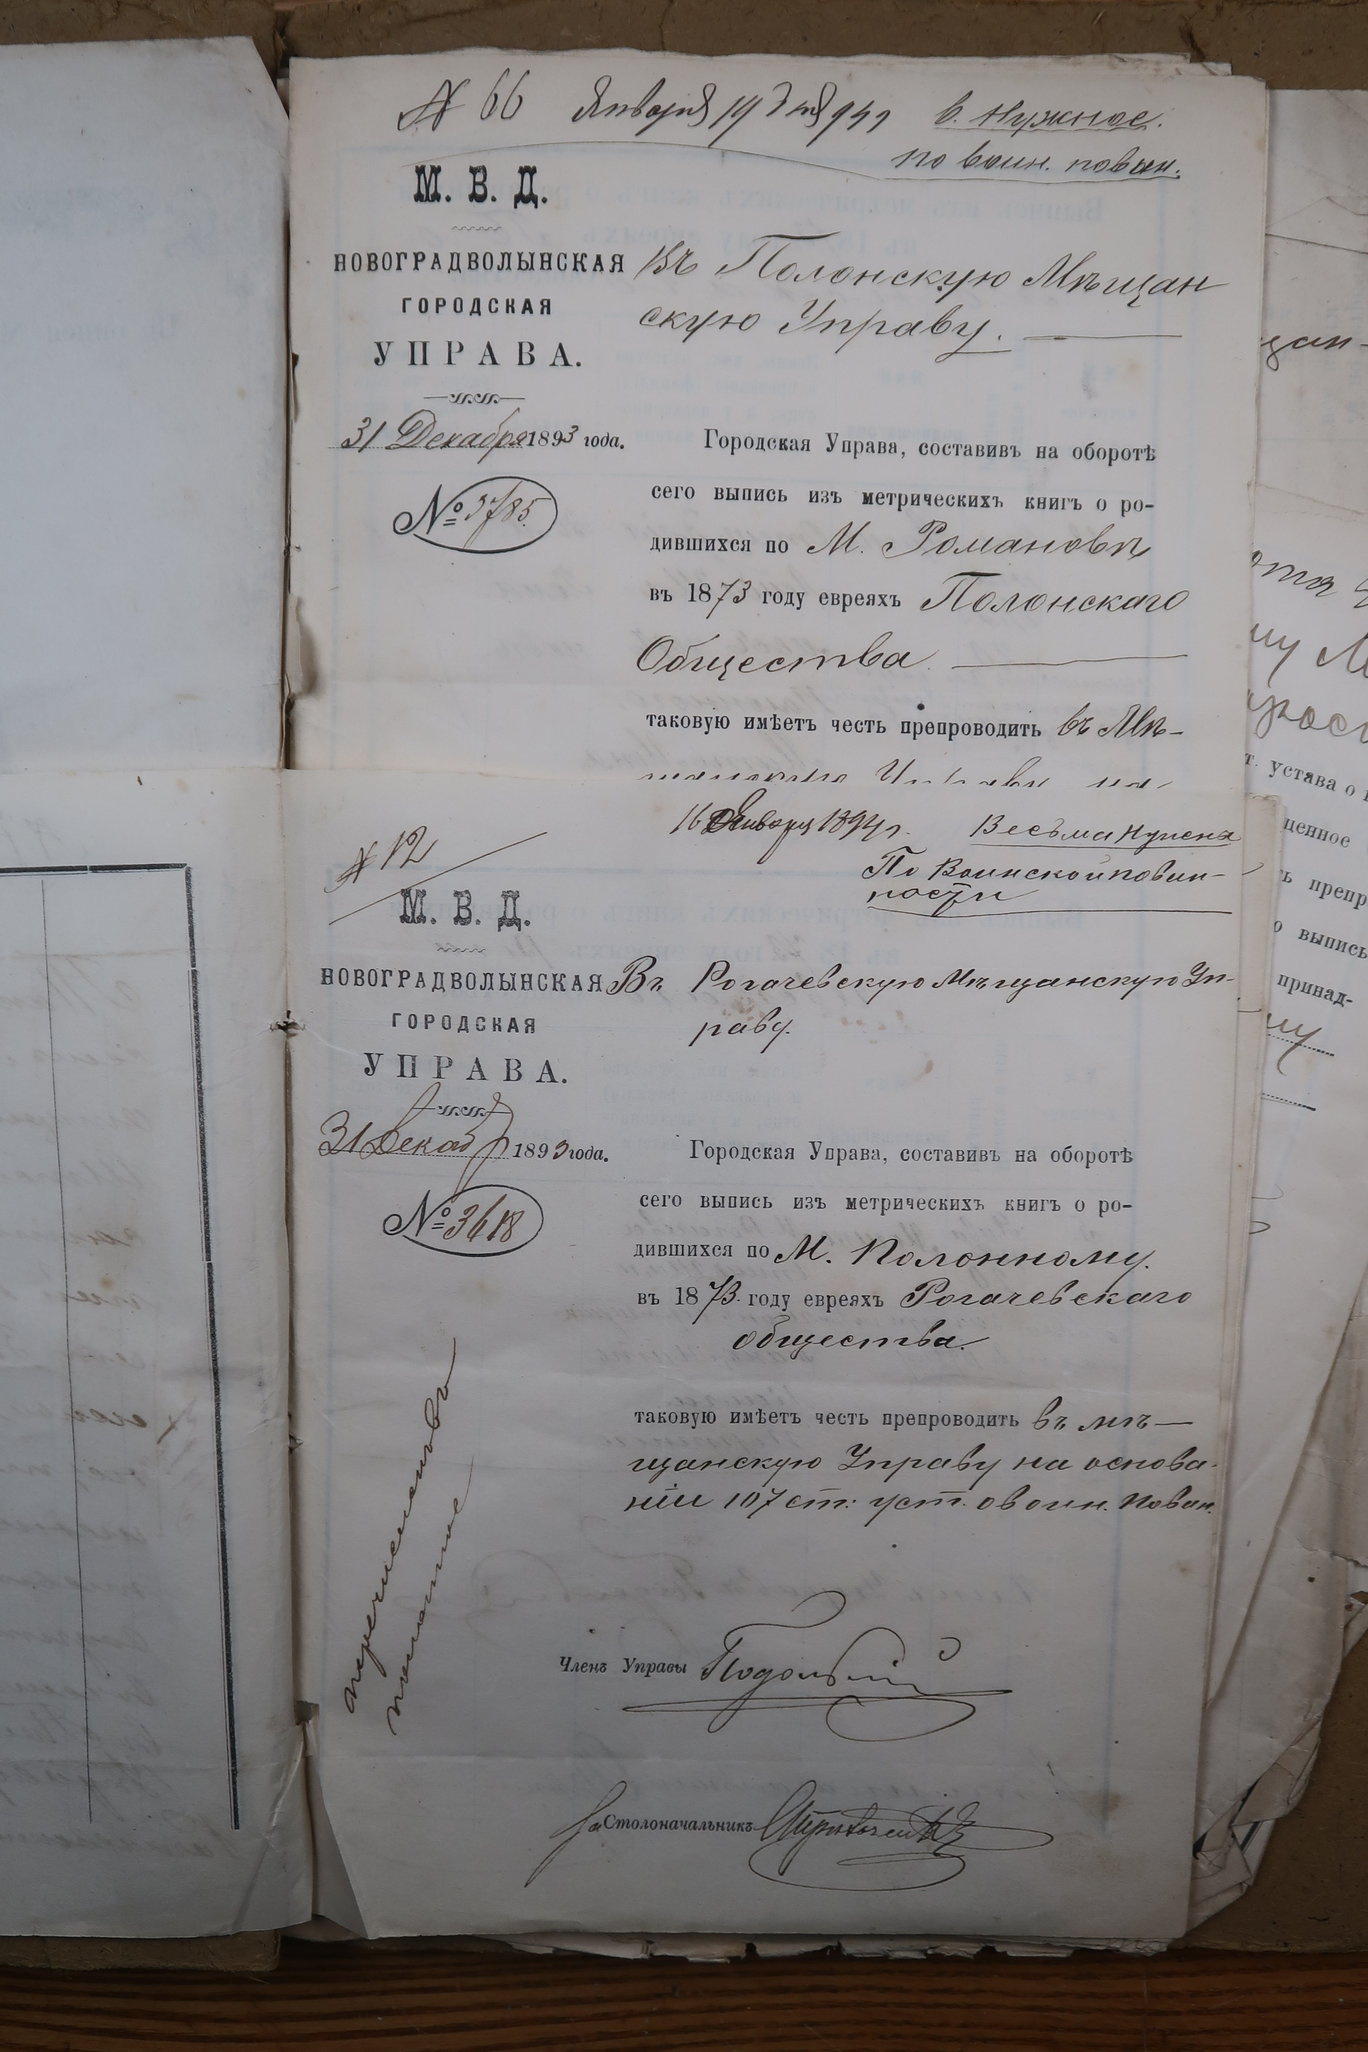 № 66 Января 19 дня 94 г. в. Нужное.
по воин. повин.
М. В. Д.
НОВОГРАДВОЛЫНСКАЯ
ГОРОДСКАЯ
УПРАВА.
31 Декабря 1893 года.
№ 3785.
Въ Полонскую Мѣщан
скую Управу.
Городская Управа, составивъ на оборотѣ
сего выпись изъ метрическихъ книгъ о ро-
дившихся по М. Романовѣ
въ 1873 году евреяхъ Полонскаго
Общества
таковую имѣетъ честь препроводить въ Мѣ-
щанскую Управу на
№ 12
16 Января 1894 г. Весьма нужная
По Воинской повин-
ности
М. В. Д.
НОВОГРАДВОЛЫНСКАЯ
ГОРОДСКАЯ
УПРАВА.
31 Декаб 1893 года.
№ 3618
Въ Рогачевскую Мѣщанскую Уп-
раву.
Городская Управа, составивъ на оборотѣ
сего выпись изъ метрическихъ книгъ о ро-
дившихся по М. Полонному.
въ 1873 году евреяхъ Рогачевскаго
общества.
таковую имѣетъ честь препроводить въ мѣ-
щанскую Управу на основа-
ніи 107 ст: уст. о воин. повин.
Членъ Управы
За Столоначальникъ
щан-
му М
т. устава о
щенное
ь препр
о выпись
принад-
му